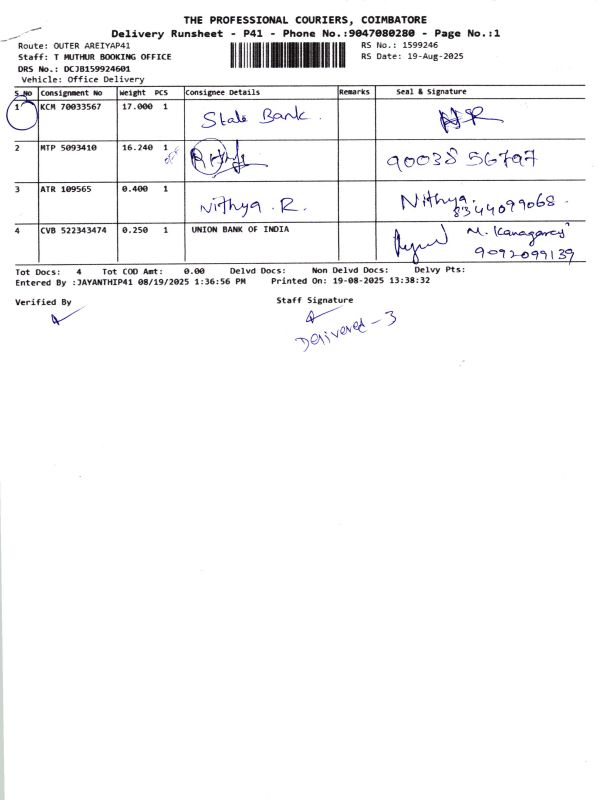 THE PROFESSIONAL COURIERS, COIMBATORE
Delivery Runsheet - P41 - Phone No.:9047080280 - Page No.:1
Route: OUTER AREIYAP41 RS No.: 1599246
Staff: T MUTHUR BOOKING OFFICE RS Date: 19-Aug-2025
DRS No.: DCJB159924601
Vehicle: Office Delivery
S.No Consignment No Weight PCS Consignee Details Remarks Seal & Signature
1 KCM 70033567 17.000 1 State Bank.
2 MTP 5093410 16.240 1 90038 56797
3 ATR 109565 0.400 1 Nithya. R. Nithya.
8344099068.
4 CVB 522343474 0.250 1 UNION BANK OF INDIA M. Kanagaraj
9092099139
Tot Docs: 4 Tot COD Amt: 0.00 Delvd Docs: Non Delvd Docs: Delvy Pts:
Entered By :JAYANTHIP41 08/19/2025 1:36:56 PM Printed On: 19-08-2025 13:38:32
Verified By Staff Signature
Delivered - 3